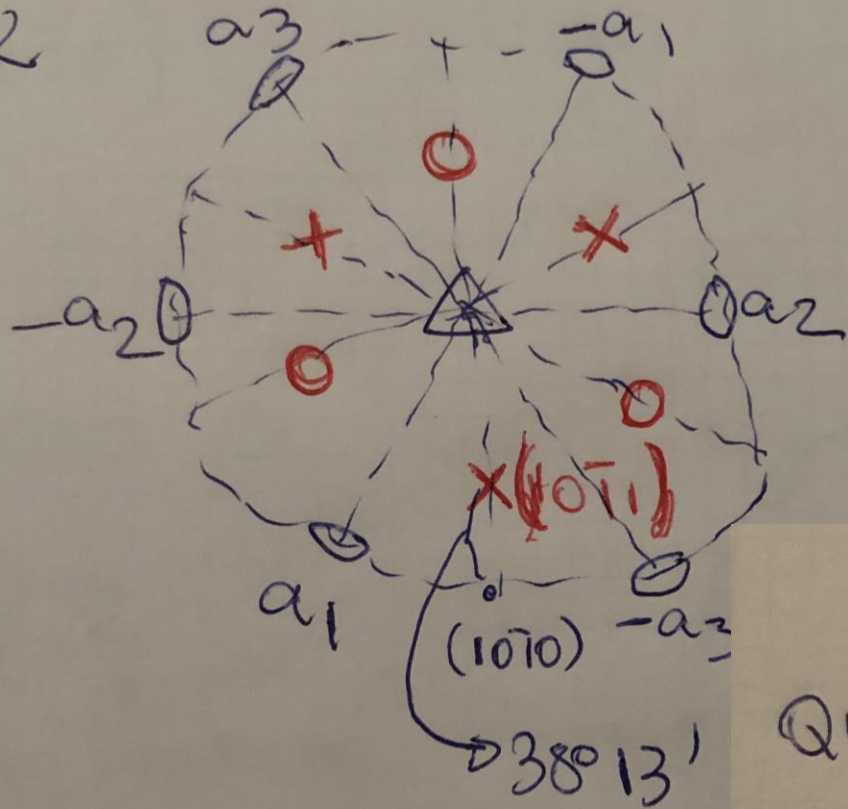 2
a3
-a1
-a2
a2
(10̄11)
a1
(101̄0)
-a3
38° 13'
Q